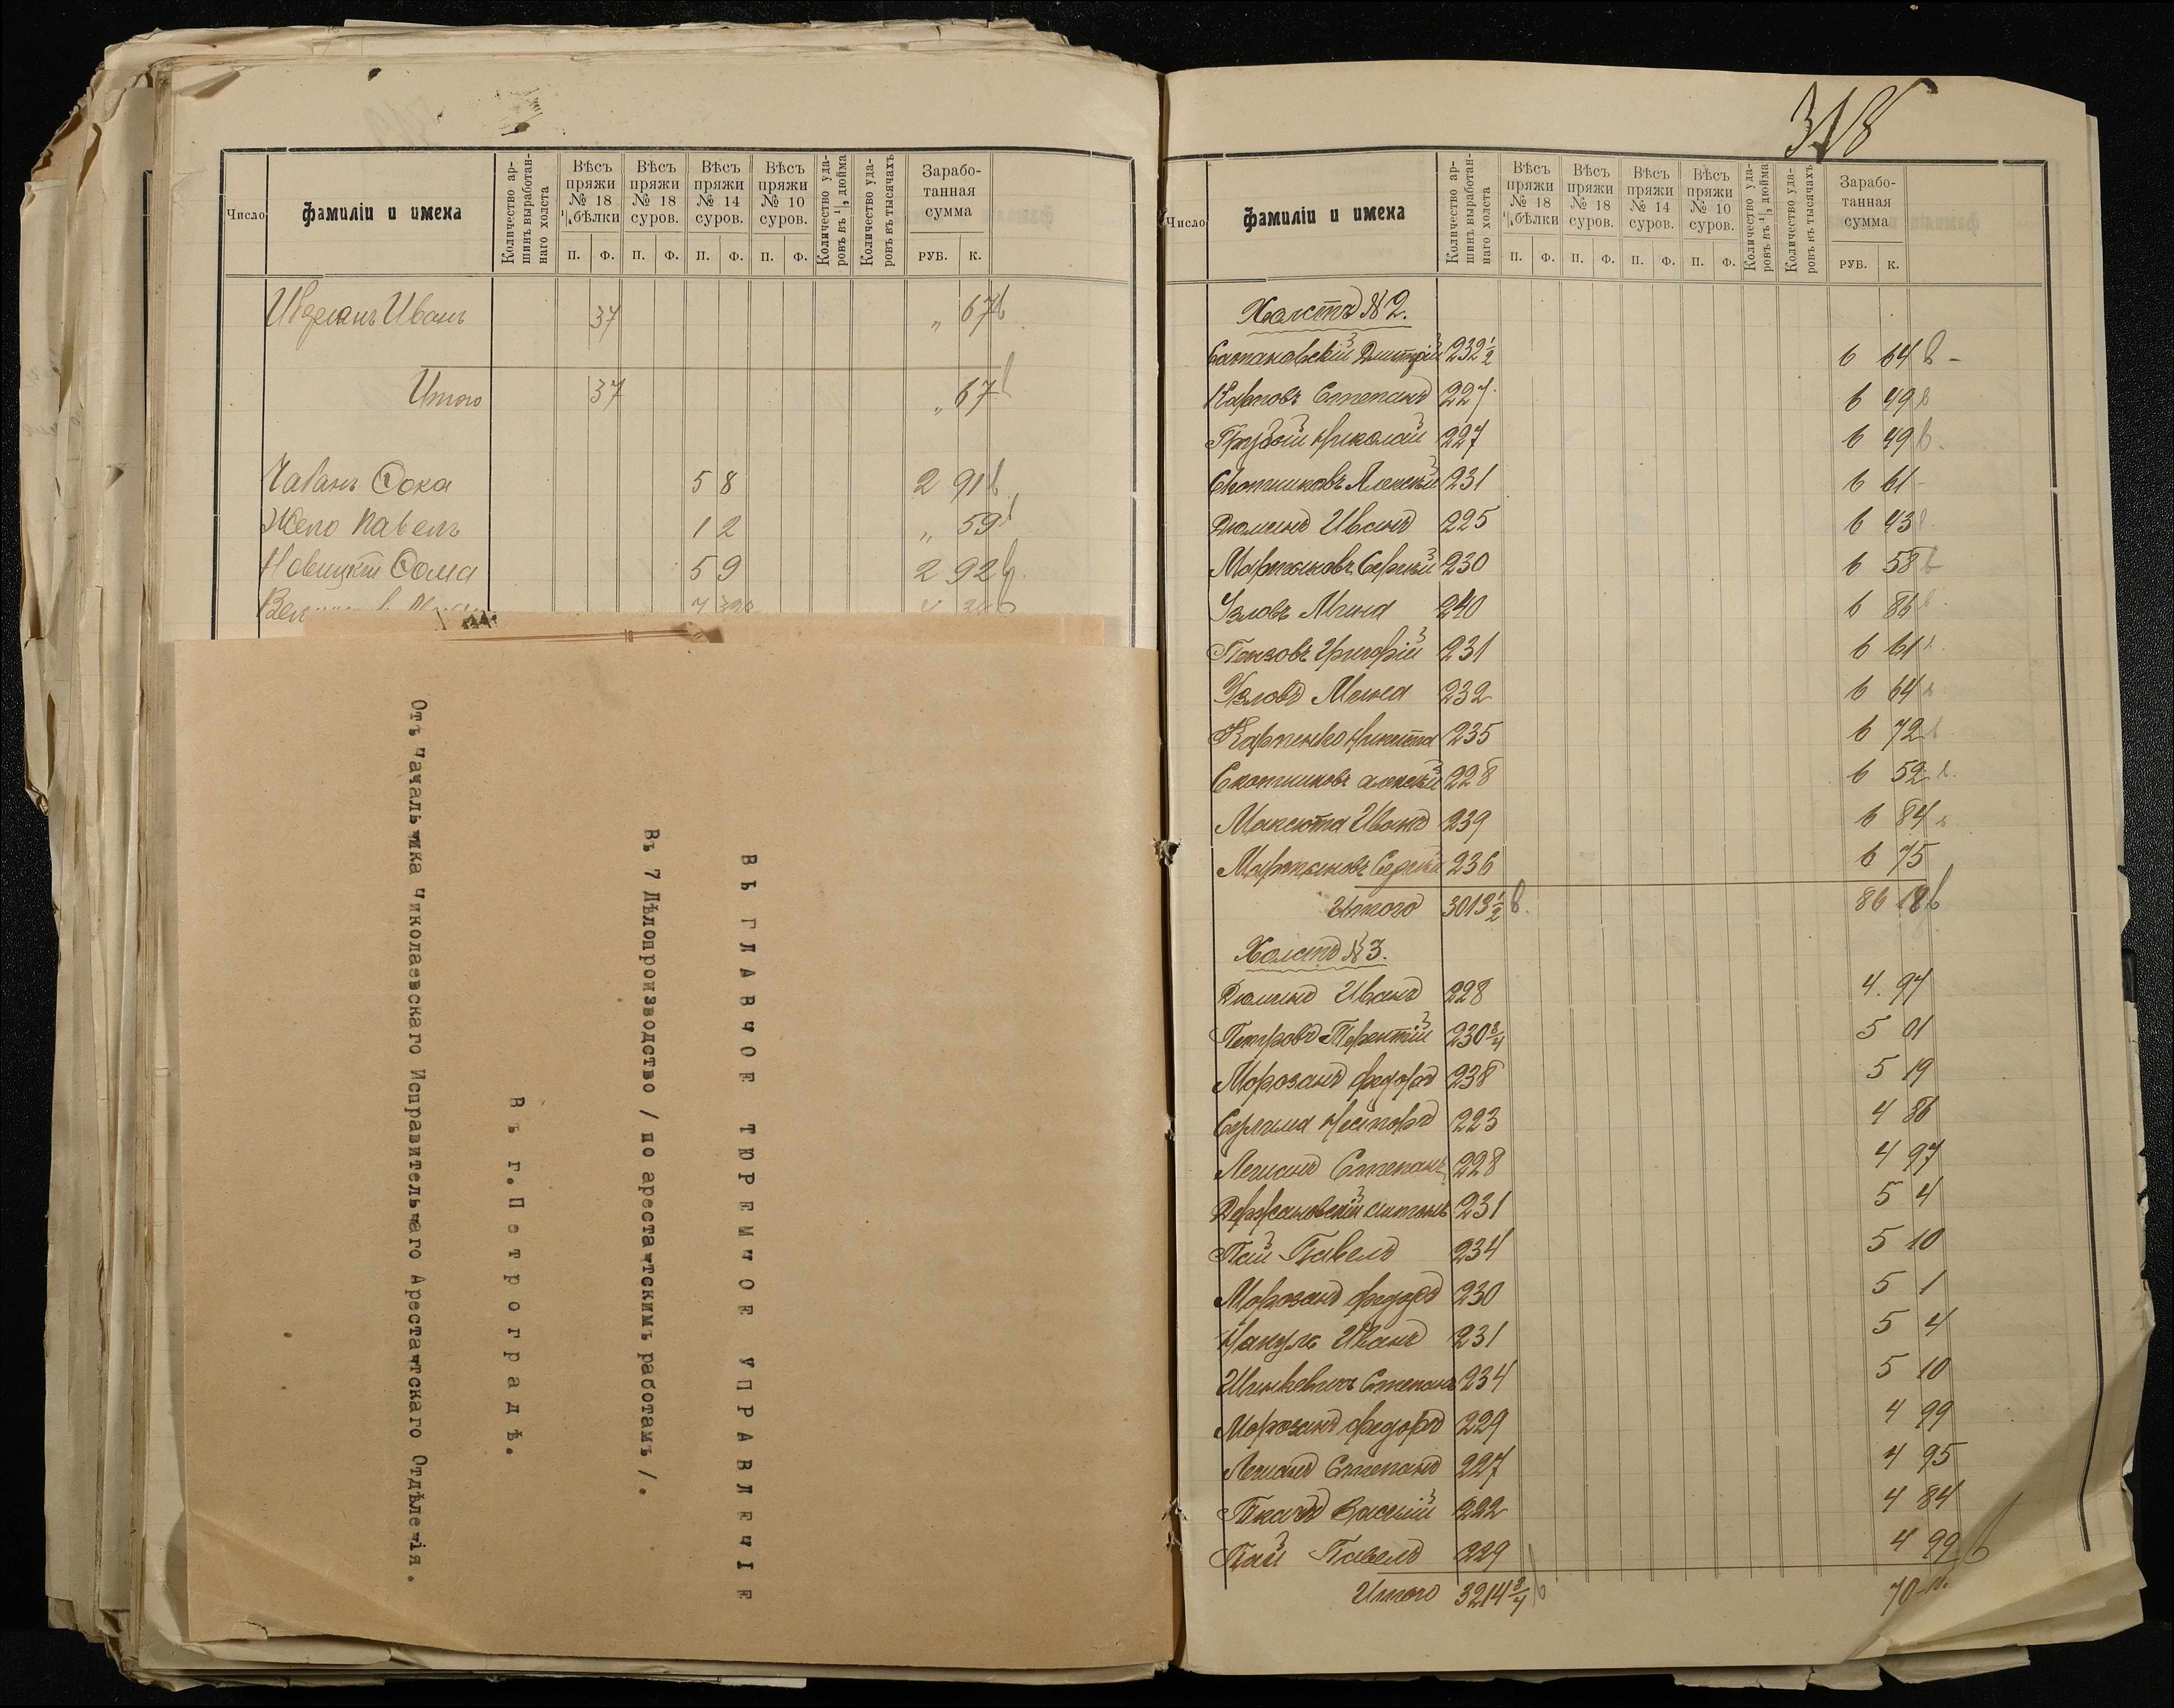 Число
фамиліи и имена
Количество ар-
шинъ выработан-
наго холста
Вѣсъ пряжи № 18 ½ бѣлки
Вѣсъ пряжи № 18 суров.
Вѣсъ пряжи № 14 суров.
Вѣсъ пряжи № 10 суров.
Количество уда-
ровъ въ ¼ дюйма
Количество уда-
ровъ въ тысячахъ
Зарабо-
танная
сумма
П. Ф. П. Ф. П. Ф. П. Ф. РУБ. К.
Иванъ 37 „ 67
Итого 37 „ 67
Чабанъ Фока 5 8 2 91
Жепо Павелъ 1 2 „ 59
Новицкій Фома 5 9 2 92
ВЪ ГЛАВЧОЕ ТЮРЕМЧОЕ УПРАВЛЕЧІЕ
Въ 7 Дѣлопроизводство / по арестачтскимъ работамъ /.
Въ г.Петроградѣ.
Отъ Чачальчика Чиколаевскаго Исправительчаго Арестачтскаго Отдѣлечія.
318
Число
фамиліи и имена
Количество ар-
шинъ выработан-
наго холста
Вѣсъ пряжи № 18 ½ бѣлки
Вѣсъ пряжи № 18 суров.
Вѣсъ пряжи № 14 суров.
Вѣсъ пряжи № 10 суров.
Количество уда-
ровъ въ ¼ дюйма
Количество уда-
ровъ въ тысячахъ
Зарабо-
танная
сумма
П. Ф. П. Ф. П. Ф. П. Ф. РУБ. К.
Холстъ № 2.
Дмитрій 232½ 6 64
Карповъ Степанъ 227 6 49
Грубый Николай 227 6 49
Скотниковъ Алексѣй 231 6 61
Дюминъ Иванъ 225 6 43
Мартыновъ Сергѣй 230 6 58
Узловъ Мина 240 6 86
Пензовъ Григорій 231 6 61
Узловъ Мина 232 6 64
Карпенко Никита 235 6 72
Скотниковъ Алексѣй 228 6 52
Максюта Иванъ 239 6 84
Мартыновъ Сергѣй 236 6 75
Итого 3013½ 86 18
Холстъ № 3.
Дюминъ Иванъ 228 4. 97
Петровъ Терентій 230¾ 5 01
Морозанъ Федоръ 238 5 19
Несторъ 223 4 86
Леманъ Степанъ 228 4 97
Держановскій Антонъ 231 5 4
Пай Павелъ 234 5 10
Морозанъ Федоръ 230 5 1
Иванъ 231 5 4
Шинкевичъ Степанъ 234 5 10
Морозанъ Федоръ 229 4 99
Леманъ Степанъ 227 4 95
Ткачъ Василій 222 4 84
Пай Павелъ 229 4 99
Итого 3214¾ 70